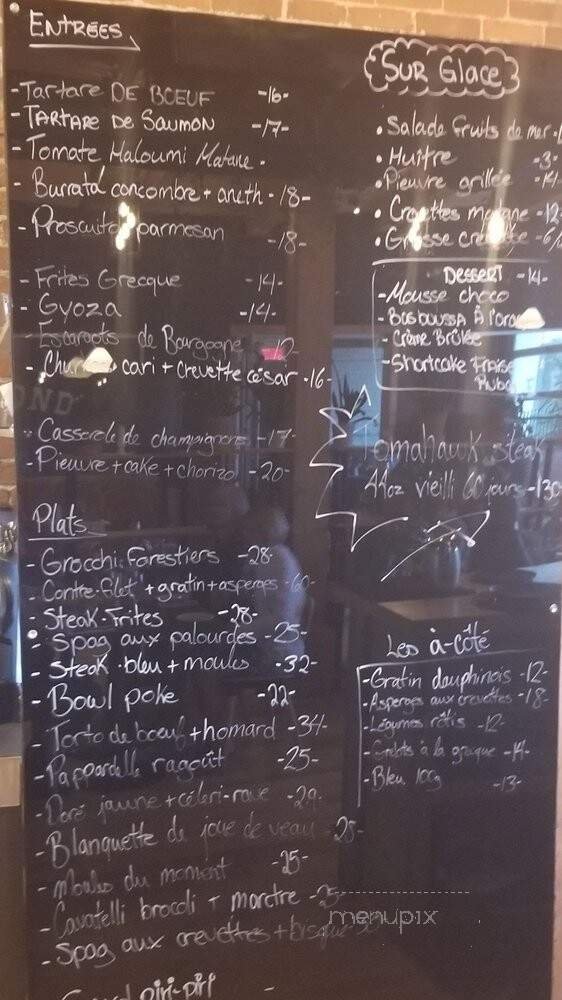 ENTRÉES
-Tartare DE BOEUF -16-
-TARTARE DE SAUMON -17-
-Tomate Haloumi Matane -
-Burrata concombre + aneth -18-
-Proscuito parmesan -18-
-Frites Grecque -14-
-Gyoza -14-
-Escargots de Bourgogne -12
- cari + crevette césar -16-
-Casserole de champignons -17-
-Pieuvre + cake + chorizo -20-
Plats
-Grocchi Forestiers -28-
-Contre-filet + gratin + asperges -60-
-Steak-Frites -28-
-Spag aux palourdes -25-
-Steak bleu + moules -32-
-Bowl poke -22-
-Torto de boeuf + homard -34-
-Pappardelle ragoût -25-
-Doré jaune + céleri-rave -29-
-Blanquette de joue de veau -25-
-Moules du moment -25-
-Cavatelli brocoli + -25-
-Spag aux crevettes + bisque
piri-piri -
SUR GLACE
•Salade fruits de mer
•Huître -3-
•Pieuvre grillée -14-
• -12-
•Grosse crevette -6/
DESSERT -14-
-Mousse choco
-Basboussa À l'
-Crème Brûlée
-Shortcake Fraise
Tomahawk steak
44oz vieilli 60 jours -130
Les à-côté
-Gratin dauphinois -12-
-Asperges aux crevettes -18
-Légumes rôtis -12-
- à la grecque -14-
-Bleu 100g -13-
menupix